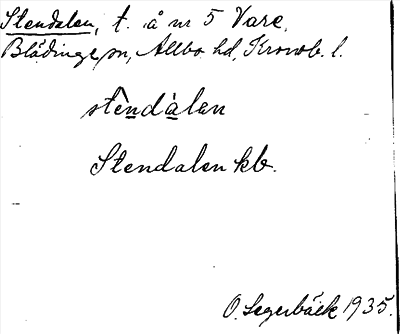 Stendalen, t. å nr 5 Vare,
Blädinge sn, Allbo hd, Kronob. l.
stèndàlen
Stendalen kb.
O. Segerbäck 1935.